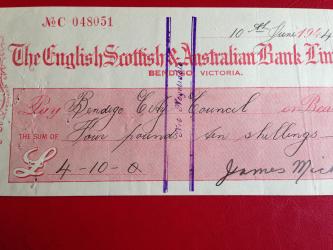 No C 048051
10th June 1964
The English Scottish & Australian Bank Lim
BENDIGO VICTORIA.
Pay Bendigo City Council or Bear
THE SUM OF Four pounds ten shillings
£ 4-10-0
James Mic
Not Negotiable